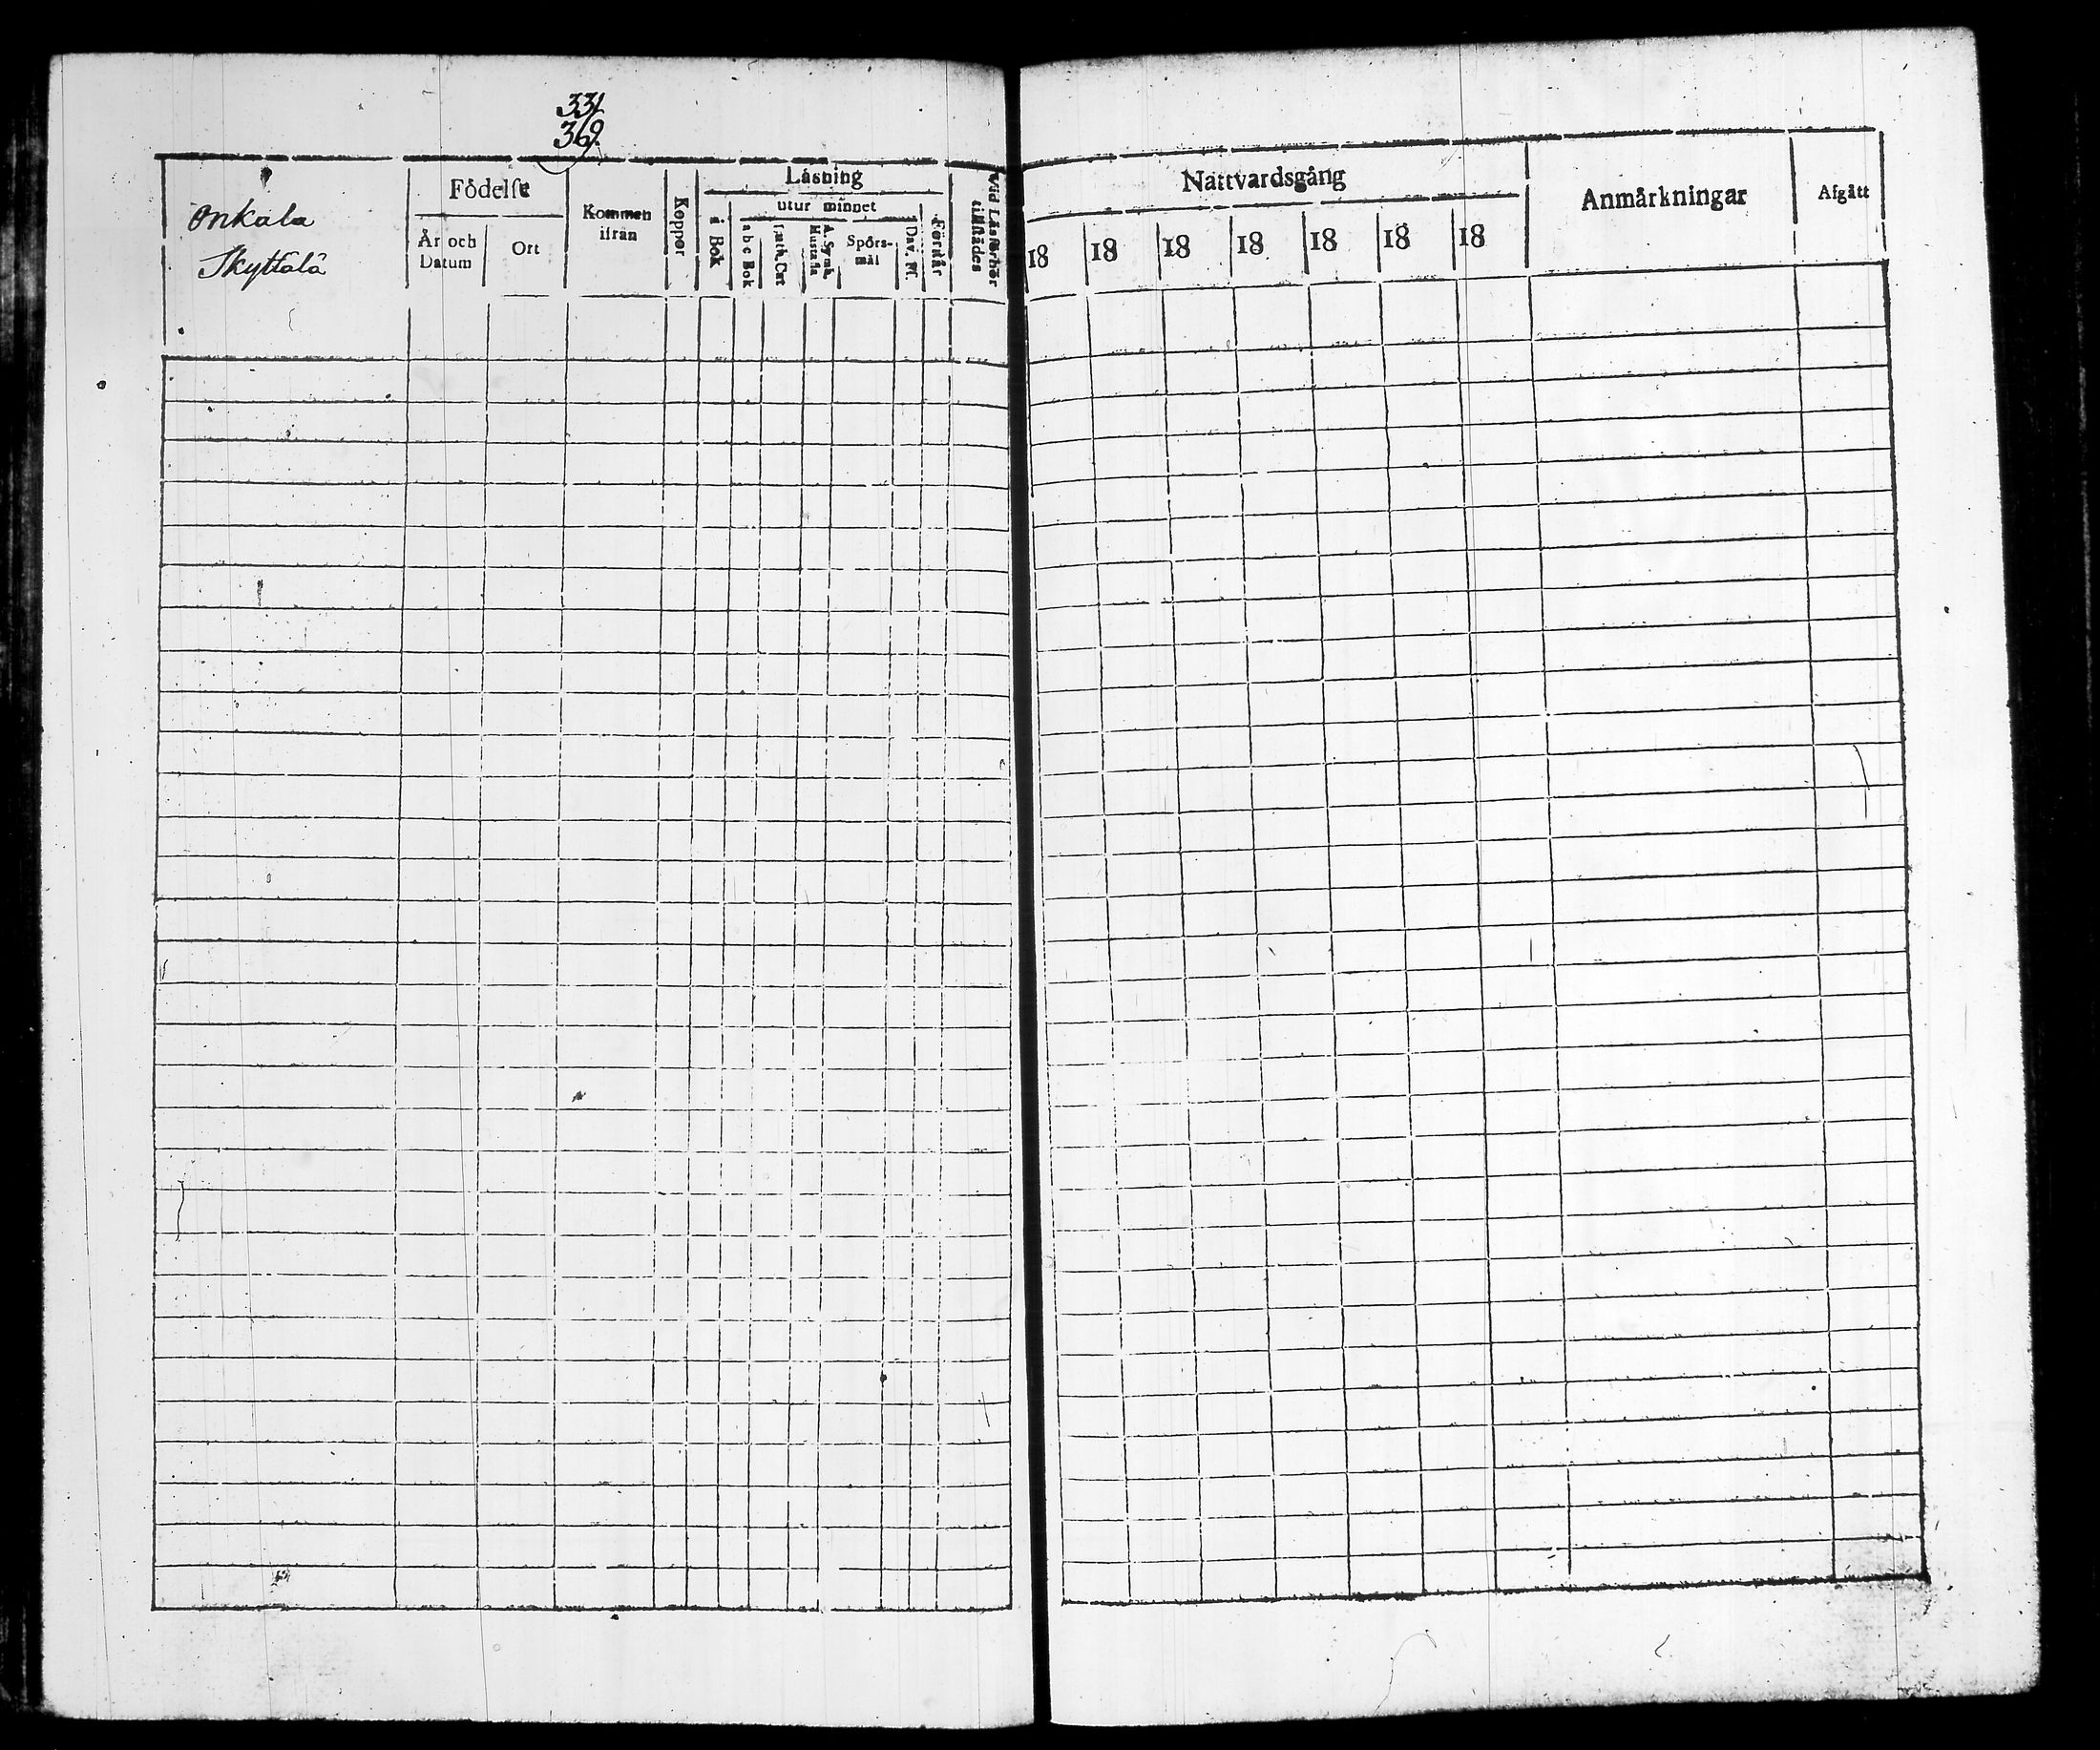 331
369.
Onkala
Skyttälä
Födelse
År och Datum
Ort
Kommen ifrån
Koppor
Läsning
i Bok
utur minnet
a b c Bok
Luth. Cat
A. Symb. Hustafla
Spörsmål
Dav. Ps.
Förstår
Vid Läsförhör tillstädes
Nattvardsgång
18 18 18 18 18 18 18
Anmärkningar
Afgått